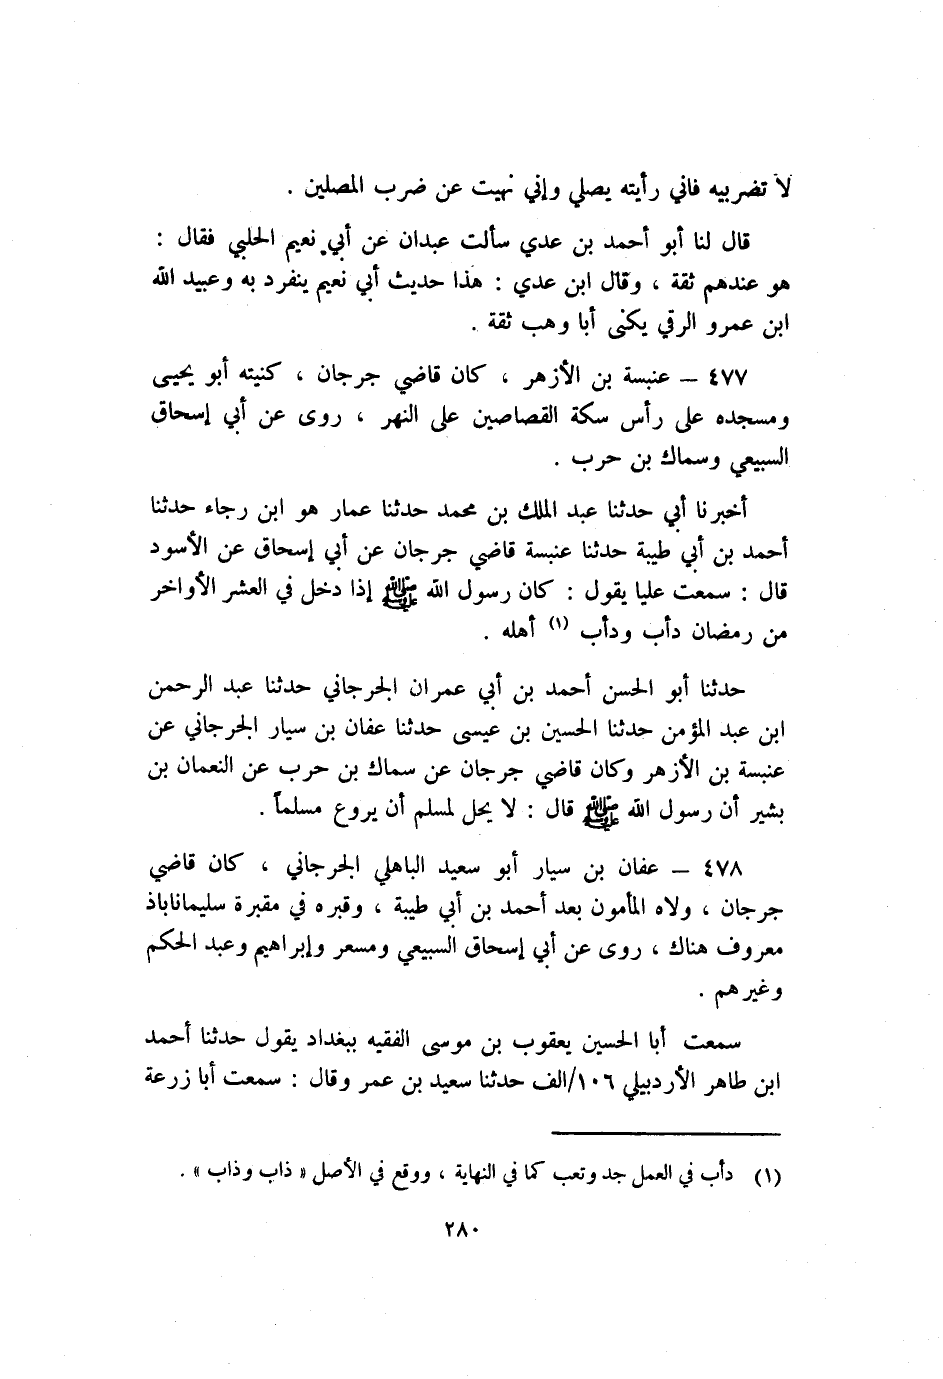 لا تضربيه فاني رأيته يصلي وإني نهيت عن ضرب المصلين .
قال لنا أبو أحمد بن عدي سألت عبدان عن أبي نعيم الحلبي فقال :
هو عندهم ثقة ، وقال ابن عدي : هذا حديث أبي نعيم ينفرد به وعبيد الله
ابن عمرو الرقي يكنى أبا وهب ثقة .
٤٧٧ — عنبسة بن الأزهر ، كان قاضي جرجان ، كنيته أبو يحيى
ومسجده على رأس سكة القصاصين على النهر ، روى عن أبي إسحاق
السبيعي وسماك بن حرب .
أخبرنا أبي حدثنا عبد الملك بن محمد حدثنا عمار هو ابن رجاء حدثنا
أحمد بن أبي طيبة حدثنا عنبسة قاضي جرجان عن أبي إسحاق عن الأسود
قال : سمعت عليا يقول : كان رسول الله ﷺ إذا دخل في العشر الأواخر
من رمضان دأب ودأب (١) أهله .
حدثنا أبو الحسن أحمد بن أبي عمران الجرجاني حدثنا عبد الرحمن
ابن عبد المؤمن حدثنا الحسين بن عيسى حدثنا عفان بن سيار الجرجاني عن
عنبسة بن الأزهر وكان قاضي جرجان عن سماك بن حرب عن النعمان بن
بشير أن رسول الله ﷺ قال : لا يحل لمسلم أن يروع مسلماً .
٤٧٨ — عفان بن سيار أبو سعيد الباهلي الجرجاني ، كان قاضي
جرجان ، ولاه المأمون بعد أحمد بن أبي طيبة ، وقبره في مقبرة سليماناباذ
معروف هناك ، روى عن أبي إسحاق السبيعي ومسعر وإبراهيم وعبد الحكم
وغيرهم .
سمعت أبا الحسين يعقوب بن موسى الفقيه ببغداد يقول حدثنا أحمد
ابن طاهر الأردبيلي ١٠٦/الف حدثنا سعيد بن عمر وقال : سمعت أبا زرعة
(١) دأب في العمل جد وتعب كما في النهاية ، ووقع في الأصل « ذاب وذاب » .
٢٨٠